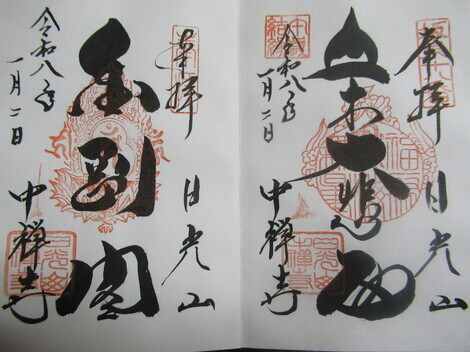 奉拝 日光山
立木大悲殿
令和八年
一月二日
中禅寺
奉拝 日光山
金剛閣
令和八年
一月二日
中禅寺